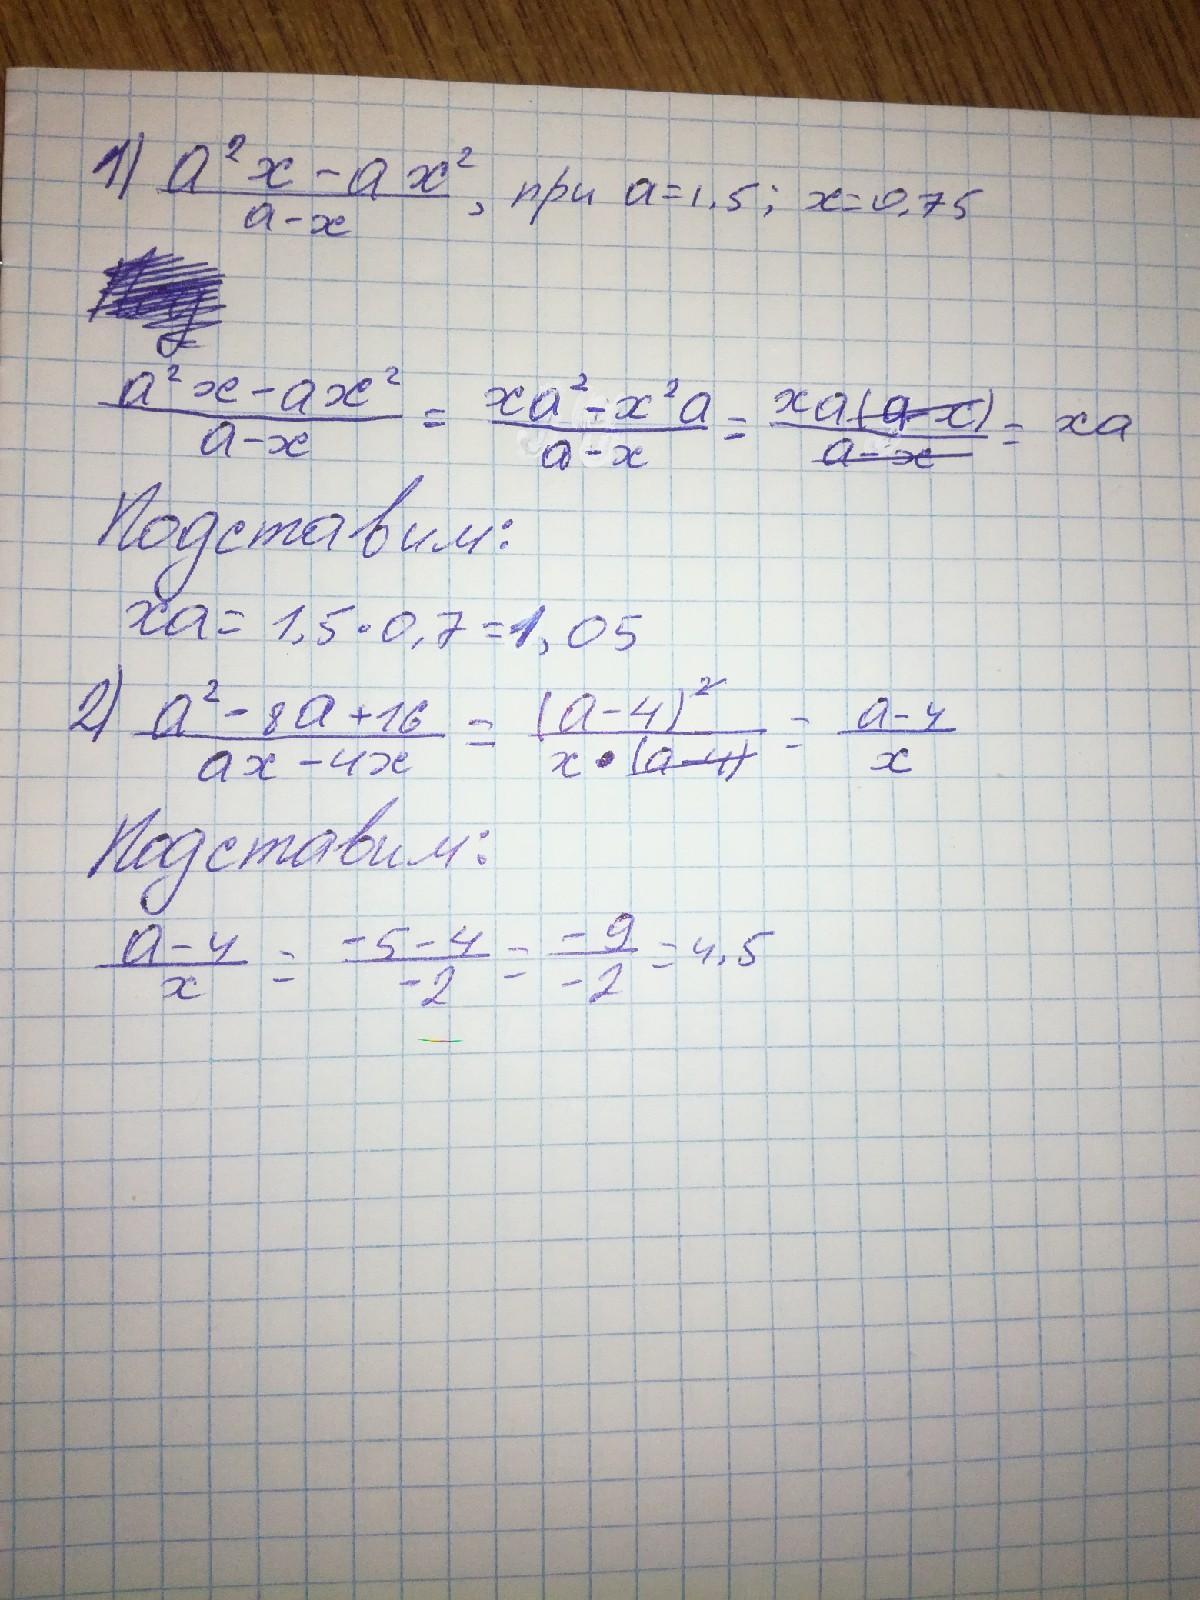 1) (a²x - ax²)/(a-x), при a=1,5; x=0,75
(a²x - ax²)/(a-x) = (xa² - x²a)/(a-x) = (xa(a-x))/(a-x) = xa
Подставим:
xa = 1,5·0,7=1,05
2) (a²-8a+16)/(ax-4x) = (a-4)²/(x·(a-4)) = (a-4)/x
Подставим:
(a-4)/x = (-5-4)/(-2) = (-9)/(-2) = 4,5